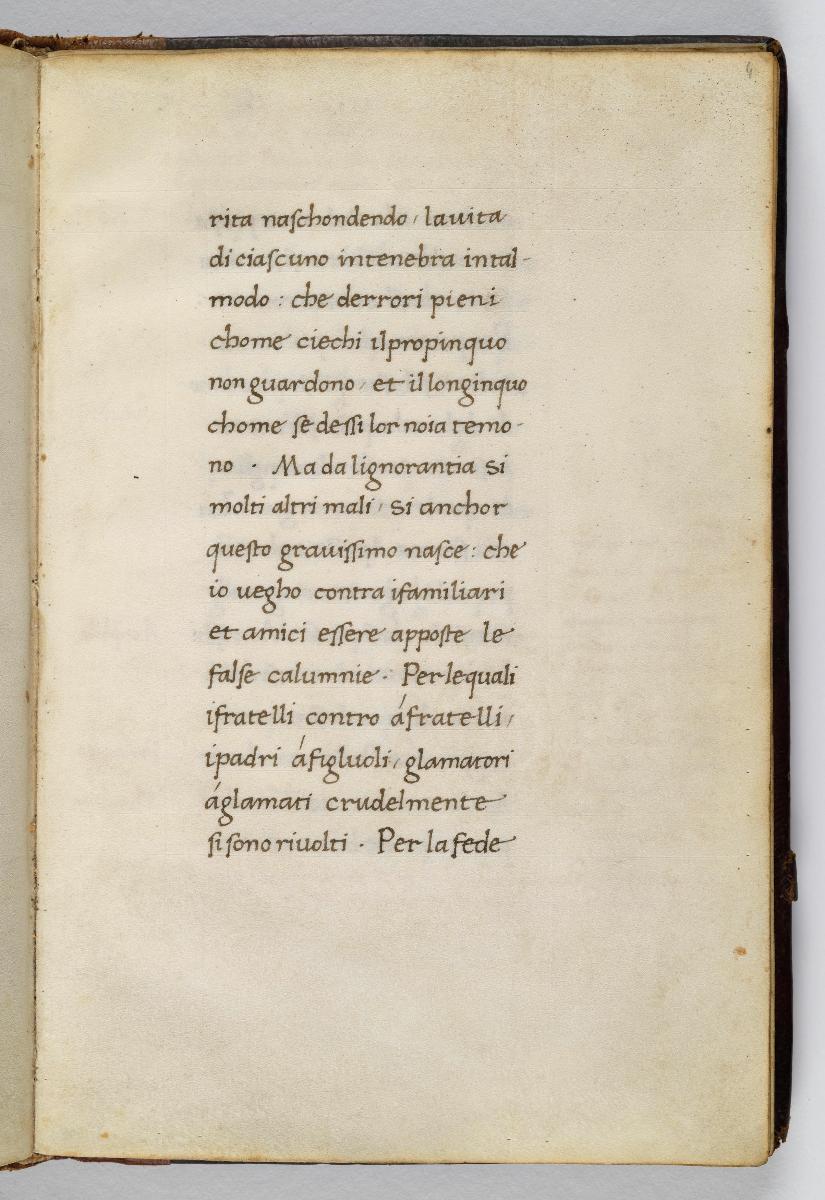 4
rita naschondendo / lauita
di ciascuno intenebra intal-
modo : che derrori pieni
chome ciechi ilpropinquo
non guardono / et il longinquo
chome se dessi lor noia temo-
no · Ma da lignorantia si
molti altri mali / si anchor
questo grauissimo nasce : che
io uegho contra ifamiliari
et amici essere apposte le
false calumnie · Per lequali
ifratelli contro áfratelli /
ipadri áfigluoli / glamatori
áglamati crudelmente
si sono riuolti · Per la fede